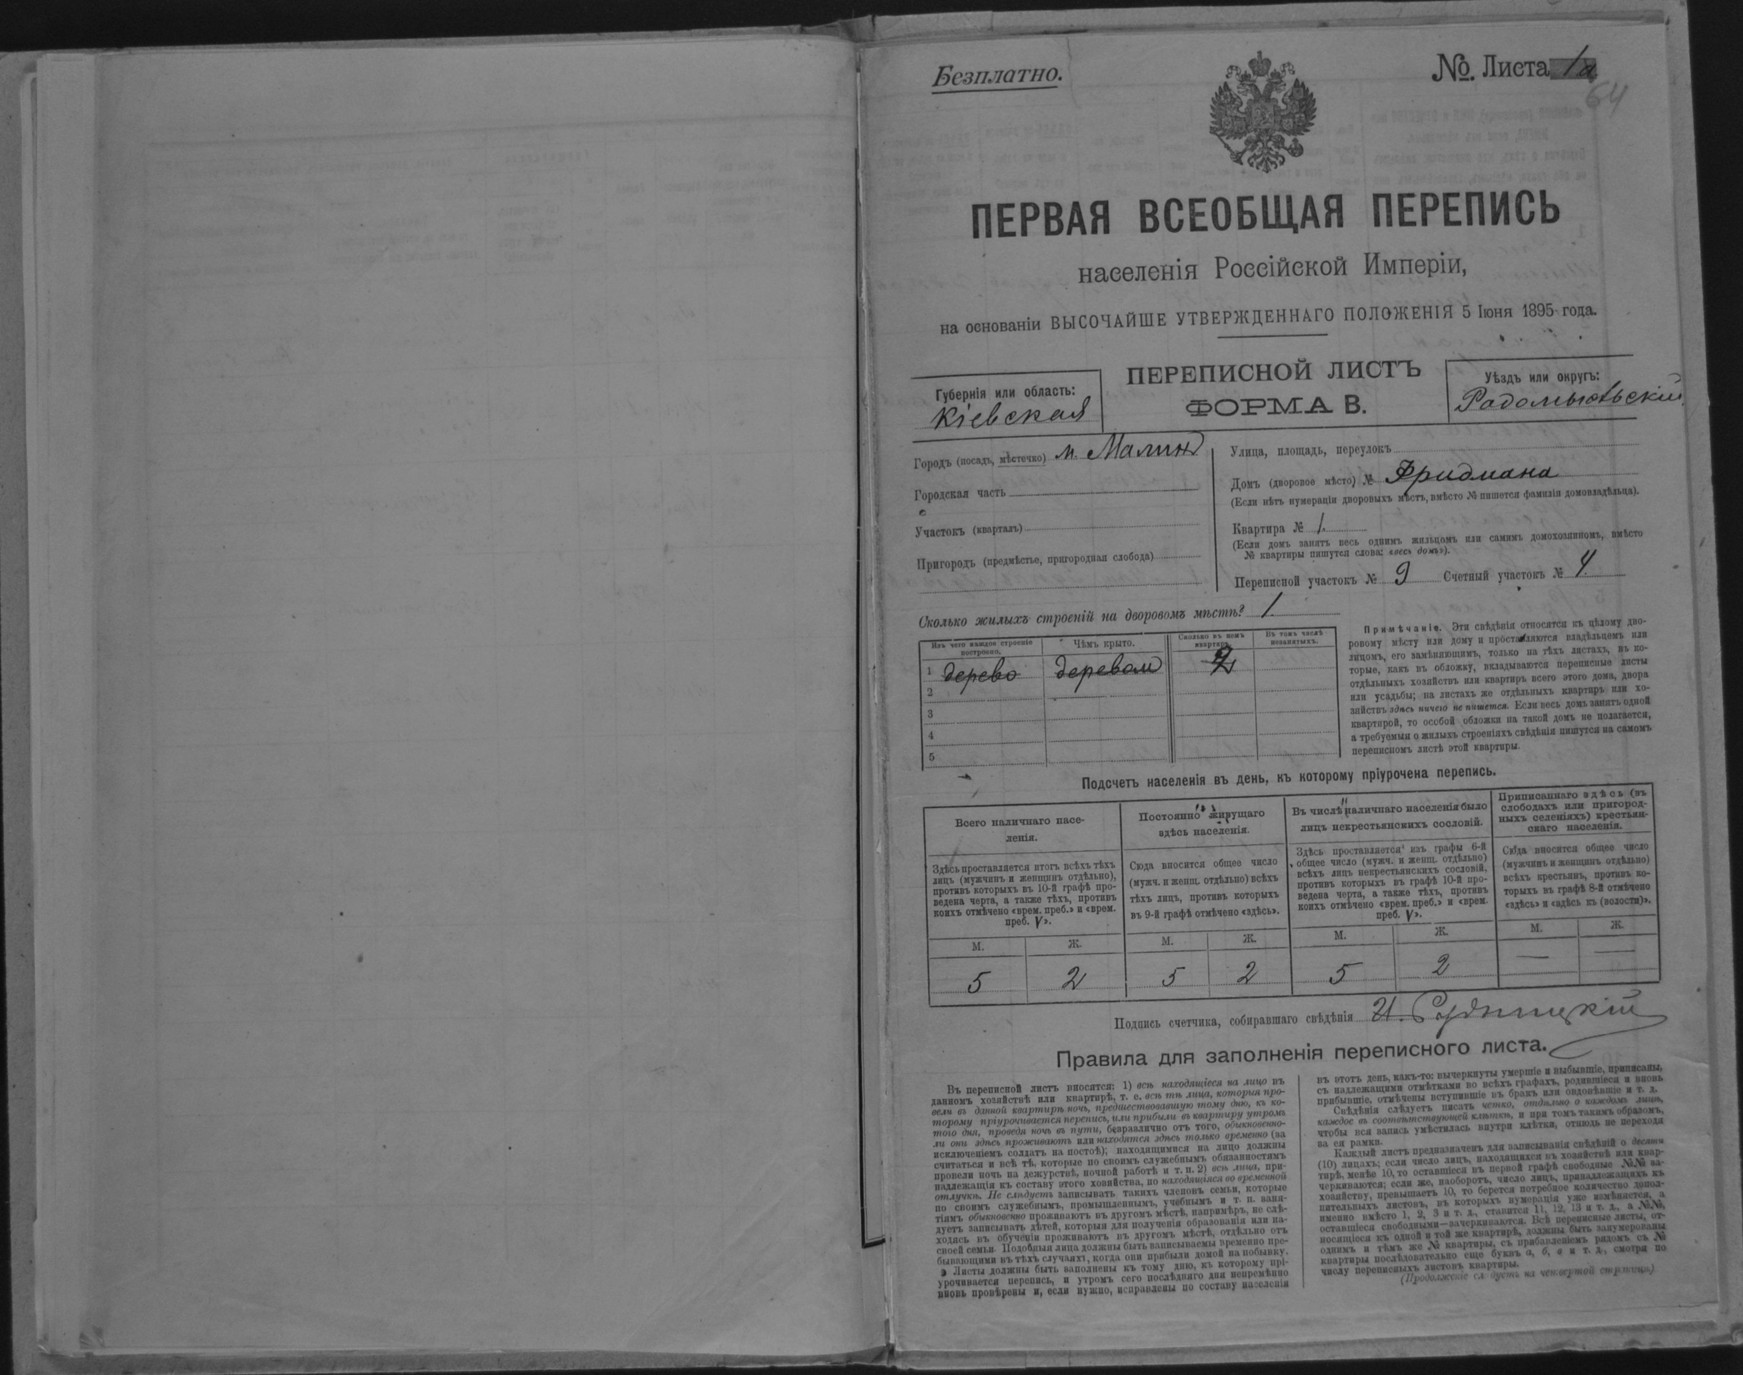 Безплатно.
№. Листа 1а
64
ПЕРВАЯ ВСЕОБЩАЯ ПЕРЕПИСЬ
населенія Россійской Имперіи,
на основаніи ВЫСОЧАЙШЕ УТВЕРЖДЕННАГО ПОЛОЖЕНІЯ 5 Іюня 1895 года.
Губернія или область:
Кіевская
ПЕРЕПИСНОЙ ЛИСТЪ
ФОРМА В.
Уѣздъ или округъ:
Радомысльскій
Городъ (посадъ, мѣстечко) м. Малинъ
Городская часть
Участокъ (кварталъ)
Пригородъ (предмѣстье, пригородная слобода)
Улица, площадь, переулокъ
Домъ (дворовое мѣсто) № Фридмана
(Если нѣтъ нумераціи дворовыхъ мѣстъ, вмѣсто № пишется фамилія домовладѣльца).
Квартира № 1.
(Если домъ занятъ весь однимъ жильцомъ или самимъ домохозяиномъ, вмѣсто
№ квартиры пишутся слова: «весь домъ»).
Переписной участокъ № 9 Счетный участокъ № 4
Сколько жилыхъ строеній на дворовомъ мѣстѣ? 1.
Изъ чего каждое строеніе построено.
Чѣмъ крыто.
Сколько въ немъ квартиръ.
Въ томъ числѣ незанятыхъ.
1 дерево деревом 2
2
3
4
5
Примѣчаніе. Эти свѣдѣнія относятся къ цѣлому дво-
ровому мѣсту или дому и проставляются владѣльцемъ или
лицомъ, его замѣняющимъ, только на тѣхъ листахъ, въ ко-
торые, какъ въ обложку, вкладываются переписные листы
отдѣльныхъ хозяйствъ или квартиръ всего этого дома, двора
или усадьбы; на листахъ же отдѣльныхъ квартиръ или хо-
зяйствъ здѣсь ничего не пишется. Если весь домъ занятъ одной
квартирой, то особой обложки на такой домъ не полагается,
а требуемыя о жилыхъ строеніяхъ свѣдѣнія пишутся на самомъ
переписномъ листѣ этой квартиры.
Подсчетъ населенія въ день, къ которому пріурочена перепись.
Всего наличнаго насе-
ленія.
Здѣсь проставляется итогъ всѣхъ тѣхъ
лицъ (мужчинъ и женщинъ отдѣльно),
противъ которыхъ въ 10-й графѣ про-
ведена черта, а также тѣхъ, противъ
коихъ отмѣчено «врем. преб.» и «врем.
преб. V».
Постоянно живущаго
здѣсь населенія.
Сюда вносится общее число
(мужч. и женщ. отдѣльно) всѣхъ
тѣхъ лицъ, противъ которыхъ
въ 9-й графѣ отмѣчено «здѣсь».
Въ числѣ наличнаго населенія было
лицъ некрестьянскихъ сословій.
Здѣсь проставляется изъ графы 6-й
общее число (мужч. и женщ. отдѣльно)
всѣхъ лицъ некрестьянскихъ сословій,
противъ которыхъ въ графѣ 10-й про-
ведена черта, а также тѣхъ, противъ
коихъ отмѣчено «врем. преб.» и «врем.
преб. V».
Приписаннаго здѣсь (въ
слободахъ или пригород-
ныхъ селеніяхъ) крестьян-
скаго населенія.
Сюда вносится общее число
(мужчинъ и женщинъ отдѣльно)
всѣхъ крестьянъ, противъ ко-
торыхъ въ графѣ 8-й отмѣчено
«здѣсь» и «здѣсь къ (волости)».
М. Ж. М. Ж. М. Ж. М. Ж.
5 2 5 2 5 2 — —
Подпись счетчика, собиравшаго свѣдѣнія И. Рудницкій
Правила для заполненія переписного листа.
Въ переписной листъ вносятся: 1) всѣ находящіеся на лицо въ
данномъ хозяйствѣ или квартирѣ, т. е. всѣ тѣ лица, которыя про-
вели въ данной квартирѣ ночь, предшествовавшую тому дню, къ ко-
торому пріурочивается перепись, или прибыли въ квартиру утромъ
того дня, проведя ночь въ пути, безразлично отъ того, обыкновенно-
ли они здѣсь проживаютъ или находятся здѣсь только временно (за
исключеніемъ солдатъ на постоѣ); находящимися на лицо должны
считаться и всѣ тѣ, которые по своимъ служебнымъ обязанностямъ
провели ночь на дежурствѣ, ночной работѣ и т. п. 2) всѣ лица, при-
надлежащія къ составу этого хозяйства, но находящіяся во временной
отлучкѣ. Не слѣдуетъ записывать такихъ членовъ семьи, которые
по своимъ служебнымъ, промышленнымъ, учебнымъ и т. п. заня-
тіямъ обыкновенно проживаютъ въ другомъ мѣстѣ, напримѣръ, не слѣ-
дуетъ записывать дѣтей, которыя для полученія образованія или на-
ходясь въ обученіи проживаютъ въ другомъ мѣстѣ, отдѣльно отъ
своей семьи. Подобныя лица должны быть записываемы временно пре-
бывающими въ тѣхъ случаяхъ, когда они прибыли домой на побывку.
Листы должны быть заполнены къ тому дню, къ которому прі-
урочивается перепись, и утромъ сего послѣдняго дня непремѣнно
вновь провѣрены и, если нужно, исправлены по составу населенія
въ этотъ день, какъ-то: вычеркнуты умершіе и выбывшіе, приписаны,
съ надлежащими отмѣтками во всѣхъ графахъ, родившіеся и вновь
прибывшіе, отмѣчены вступившіе въ бракъ или овдовѣвшіе и т. д.
Свѣдѣнія слѣдуетъ писать четко, отдѣльно о каждомъ лицѣ,
каждое въ соотвѣтствующей клѣткѣ, и при томъ такимъ образомъ,
чтобы вся запись умѣстилась внутри клѣтки, отнюдь не переходя
за ея рамки.
Каждый листъ предназначенъ для записыванія свѣдѣній о десяти
(10) лицахъ; если число лицъ, находящихся въ хозяйствѣ или квар-
тирѣ, менѣе 10, то оставшіеся въ первой графѣ свободные №№ за-
черкиваются; если же, наоборотъ, число лицъ, принадлежащихъ къ
хозяйству, превышаетъ 10, то берется потребное количество допол-
нительныхъ листовъ, въ которыхъ нумерація уже измѣняется, а
именно вмѣсто 1, 2, 3 и т. д., ставится 11, 12, 13 и т. д., а №№,
оставшіеся свободными—зачеркиваются. Всѣ переписные листы, от-
носящіеся къ одной и той же квартирѣ, должны быть занумерованы
однимъ и тѣмъ же № квартиры, съ прибавленіемъ рядомъ съ №
квартиры послѣдовательно еще буквъ а, б, в и т. д., смотря по
числу переписныхъ листовъ квартиры.
(Продолженіе слѣдуетъ на четвертой страницѣ).